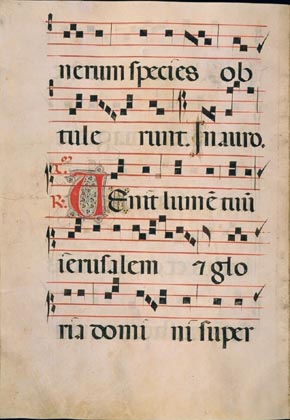 nerum species ob
tule runt. In auro.
R. VEnit lumē tuū
ierusalem ⁊ glo
ria domi ni super